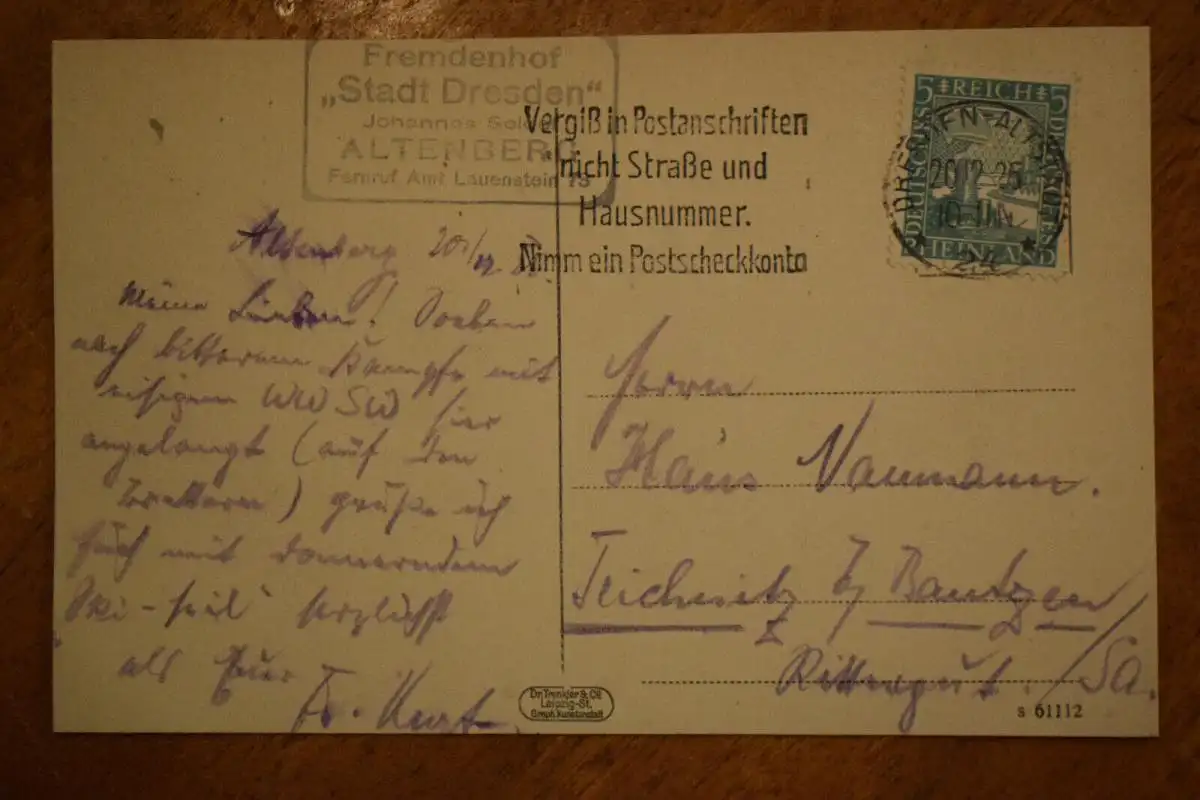 Fremdenhof
„Stadt Dresden"
Johannes
ALTENBERG
Fernruf Amt Lauenstein 73
Vergiß in Postanschriften
nicht Straße und
Hausnummer.
Nimm ein Postscheckkonto
5 REICH 5
DEUTSCHES
RHEINLAND
DRESDEN-ALTST.
20.12.25
24
Altenberg 20./12.
Meine Lieben! Soeben
nach bitterem Kampfe mit
eisigem WW SW hier
angelangt (auf den
Brettern) grüße ich
Euch mit donnerndem
Ski-Heil herzlichst
als Euer
Fr. Kurt
Herrn
Hans Naumann.
Teichnitz b/ Bautzen
Rittergut. /Sa.
Dr. Trenkler & Co.
Leipzig-St.
Graph. Kunstanstalt
s 61112